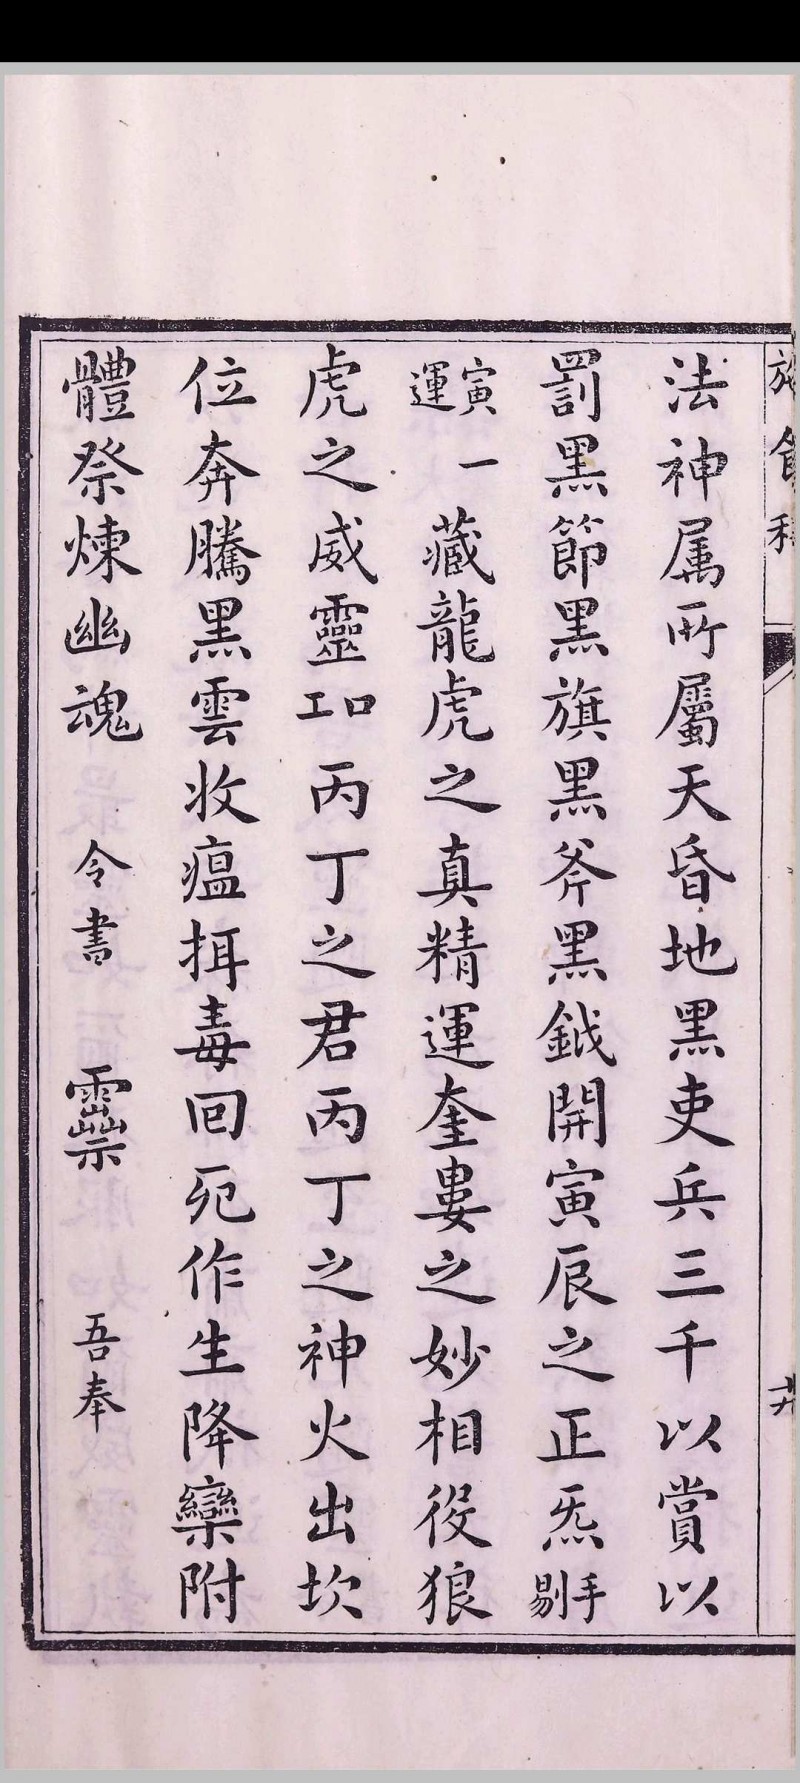 法神属所屬天昏地黑吏兵三千以賞以
罰黑節黑旗黑斧黑鉞開寅辰之正炁手剔
寅運一藏龍虎之真精運奎婁之妙相役狼
虎之威靈㕦丙丁之君丙丁之神火出坎
位奔騰黑雲收瘟揖毒回死作生降欒附
體祭煉幽魂 令書 吾奉